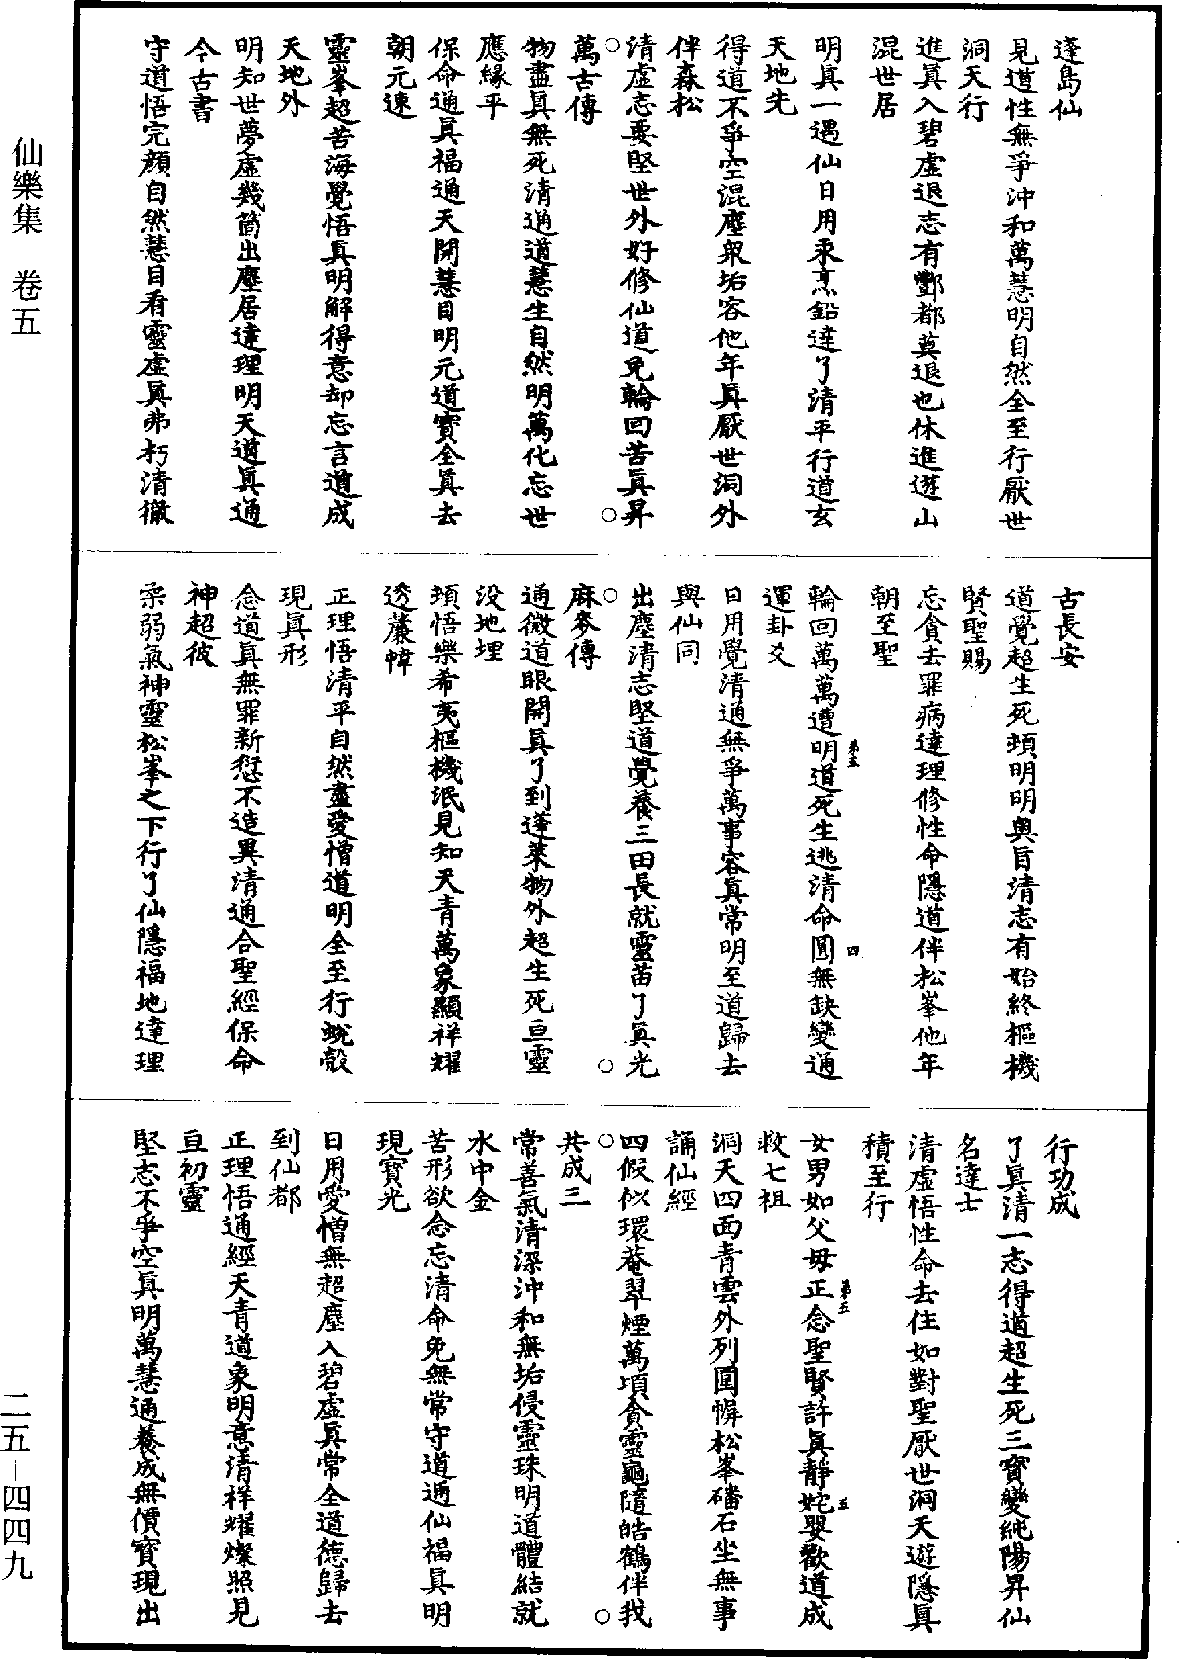 仙樂集　卷五
蓬島仙
見道性無爭沖和萬慧明自然全至行厭世
洞天行
進眞入碧虛退志有酆都莫退也休進遊山
混世居
明眞一遇仙日用汞烹鉛達了清平行道玄
天地先
得道不爭空混塵衆垢容他年眞厭世洞外
伴森松
清虛志要堅世外好修仙道免輪回苦眞昇
萬古傳
物盡眞無死清通道慧生自然明萬化忘世
應緣平
保命通眞福通天開慧目明元道寶全眞去
朝元速
靈峯超苦海覺悟眞明解得意却忘言道成
天地外
明知世夢虛幾箇出塵居達理明天道眞通
今古書
守道悟完顏自然慧目看靈虛眞弗朽清徹
古長安
道覺超生死頓明明奧旨清志有始終樞機
賢聖賜
忘貪去罪病達理修性命隱道伴松峯他年
朝至聖
輪回萬萬遭明道死生逃清命圓無缺變通
第五
四
運卦爻
日用覺清通無爭萬事容眞常明至道歸去
與仙同
出塵清志堅道覺養三田長就靈苗了眞光
麻麥傳
通微道眼開眞了到蓬萊物外超生死亘靈
沒地埋
頓悟樂希夷樞機泯見知天青萬象顯祥耀
透簾幃
正理悟清平自然盡愛憎道明全至行蛻殼
現眞形
念道眞無罪新愆不造異清通合聖經保命
神超彼
柔弱氣神靈松峯之下行了仙隱福地達理
行功成
了眞清一志得遒超生死三寶變純陽昇仙
名達士
清虛悟性命去住如對聖厭世洞天遊隱眞
積至行
女男如父母正念聖賢許眞靜姹嬰歡道成
第五
五
救七祖
洞天四面青雲外列圍幈松峯磻石坐無事
誦仙經
四假似環菴翠煙萬頃貪靈龜隨皓鶴伴我
共成三
常善氣清深沖和無垢侵靈珠明道體結就
水中金
苦形欲念忘清命免無常守道遁仙福眞明
現寶光
日用愛憎無超塵入碧虛眞常全道德歸去
到仙都
正理悟通經天青道象明意清祥耀燦照見
亘初靈
堅志不爭空眞明萬慧通養成無價寶現出
二五－四四九